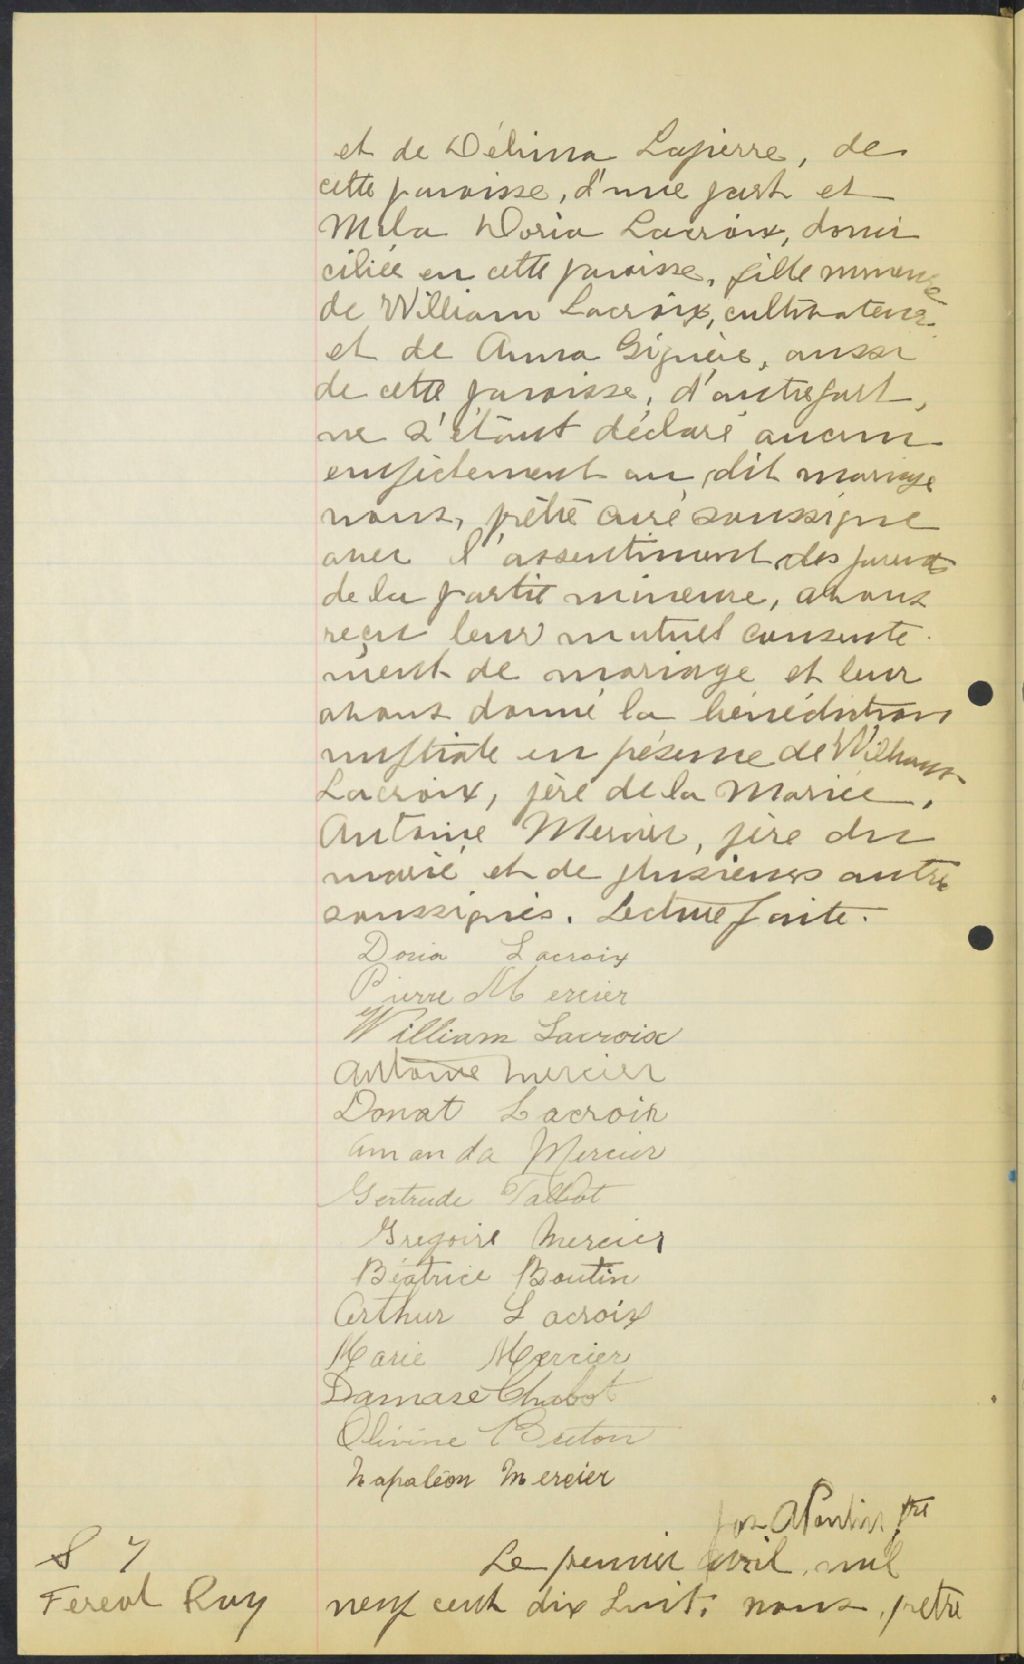 et de Délima Lapierre, de
cette paroisse, d'une part et
Mlle Doria Lacroix, domi
ciliée en cette paroisse, fille mineure
de William Lacroix, cultivateur
et de Anna Giguère, aussi
de cette paroisse, d'autre part,
ne s'étant déclaré aucun
empêchement au dit mariage
nous, prêtre curé soussigné
avec l'assentiment des parents
de la partie mineure, avons
reçu leur mutuel consente
ment de mariage et leur
avons donné la bénédiction
nuptiale en présence de William
Lacroix, père de la Mariée,
Antoine Mercier, père du
marié et de plusieurs autre
soussignés. Lecture faite.
Doria Lacroix
Pierre Mercier
William Lacroix
Antoine Mercier
Donat Lacroix
Amanda Mercier
Gertrude Talbot
Gregoire Mercier
Béatrice Boutin
Arthur Lacroix
Marie Mercier
Damase Chabot
Olivine Breton
Napaléon Mercier
Jos ptre
S 7
Fereol Roy
Le premier avril, mil
neuf cent dix huit, nous, prêtre